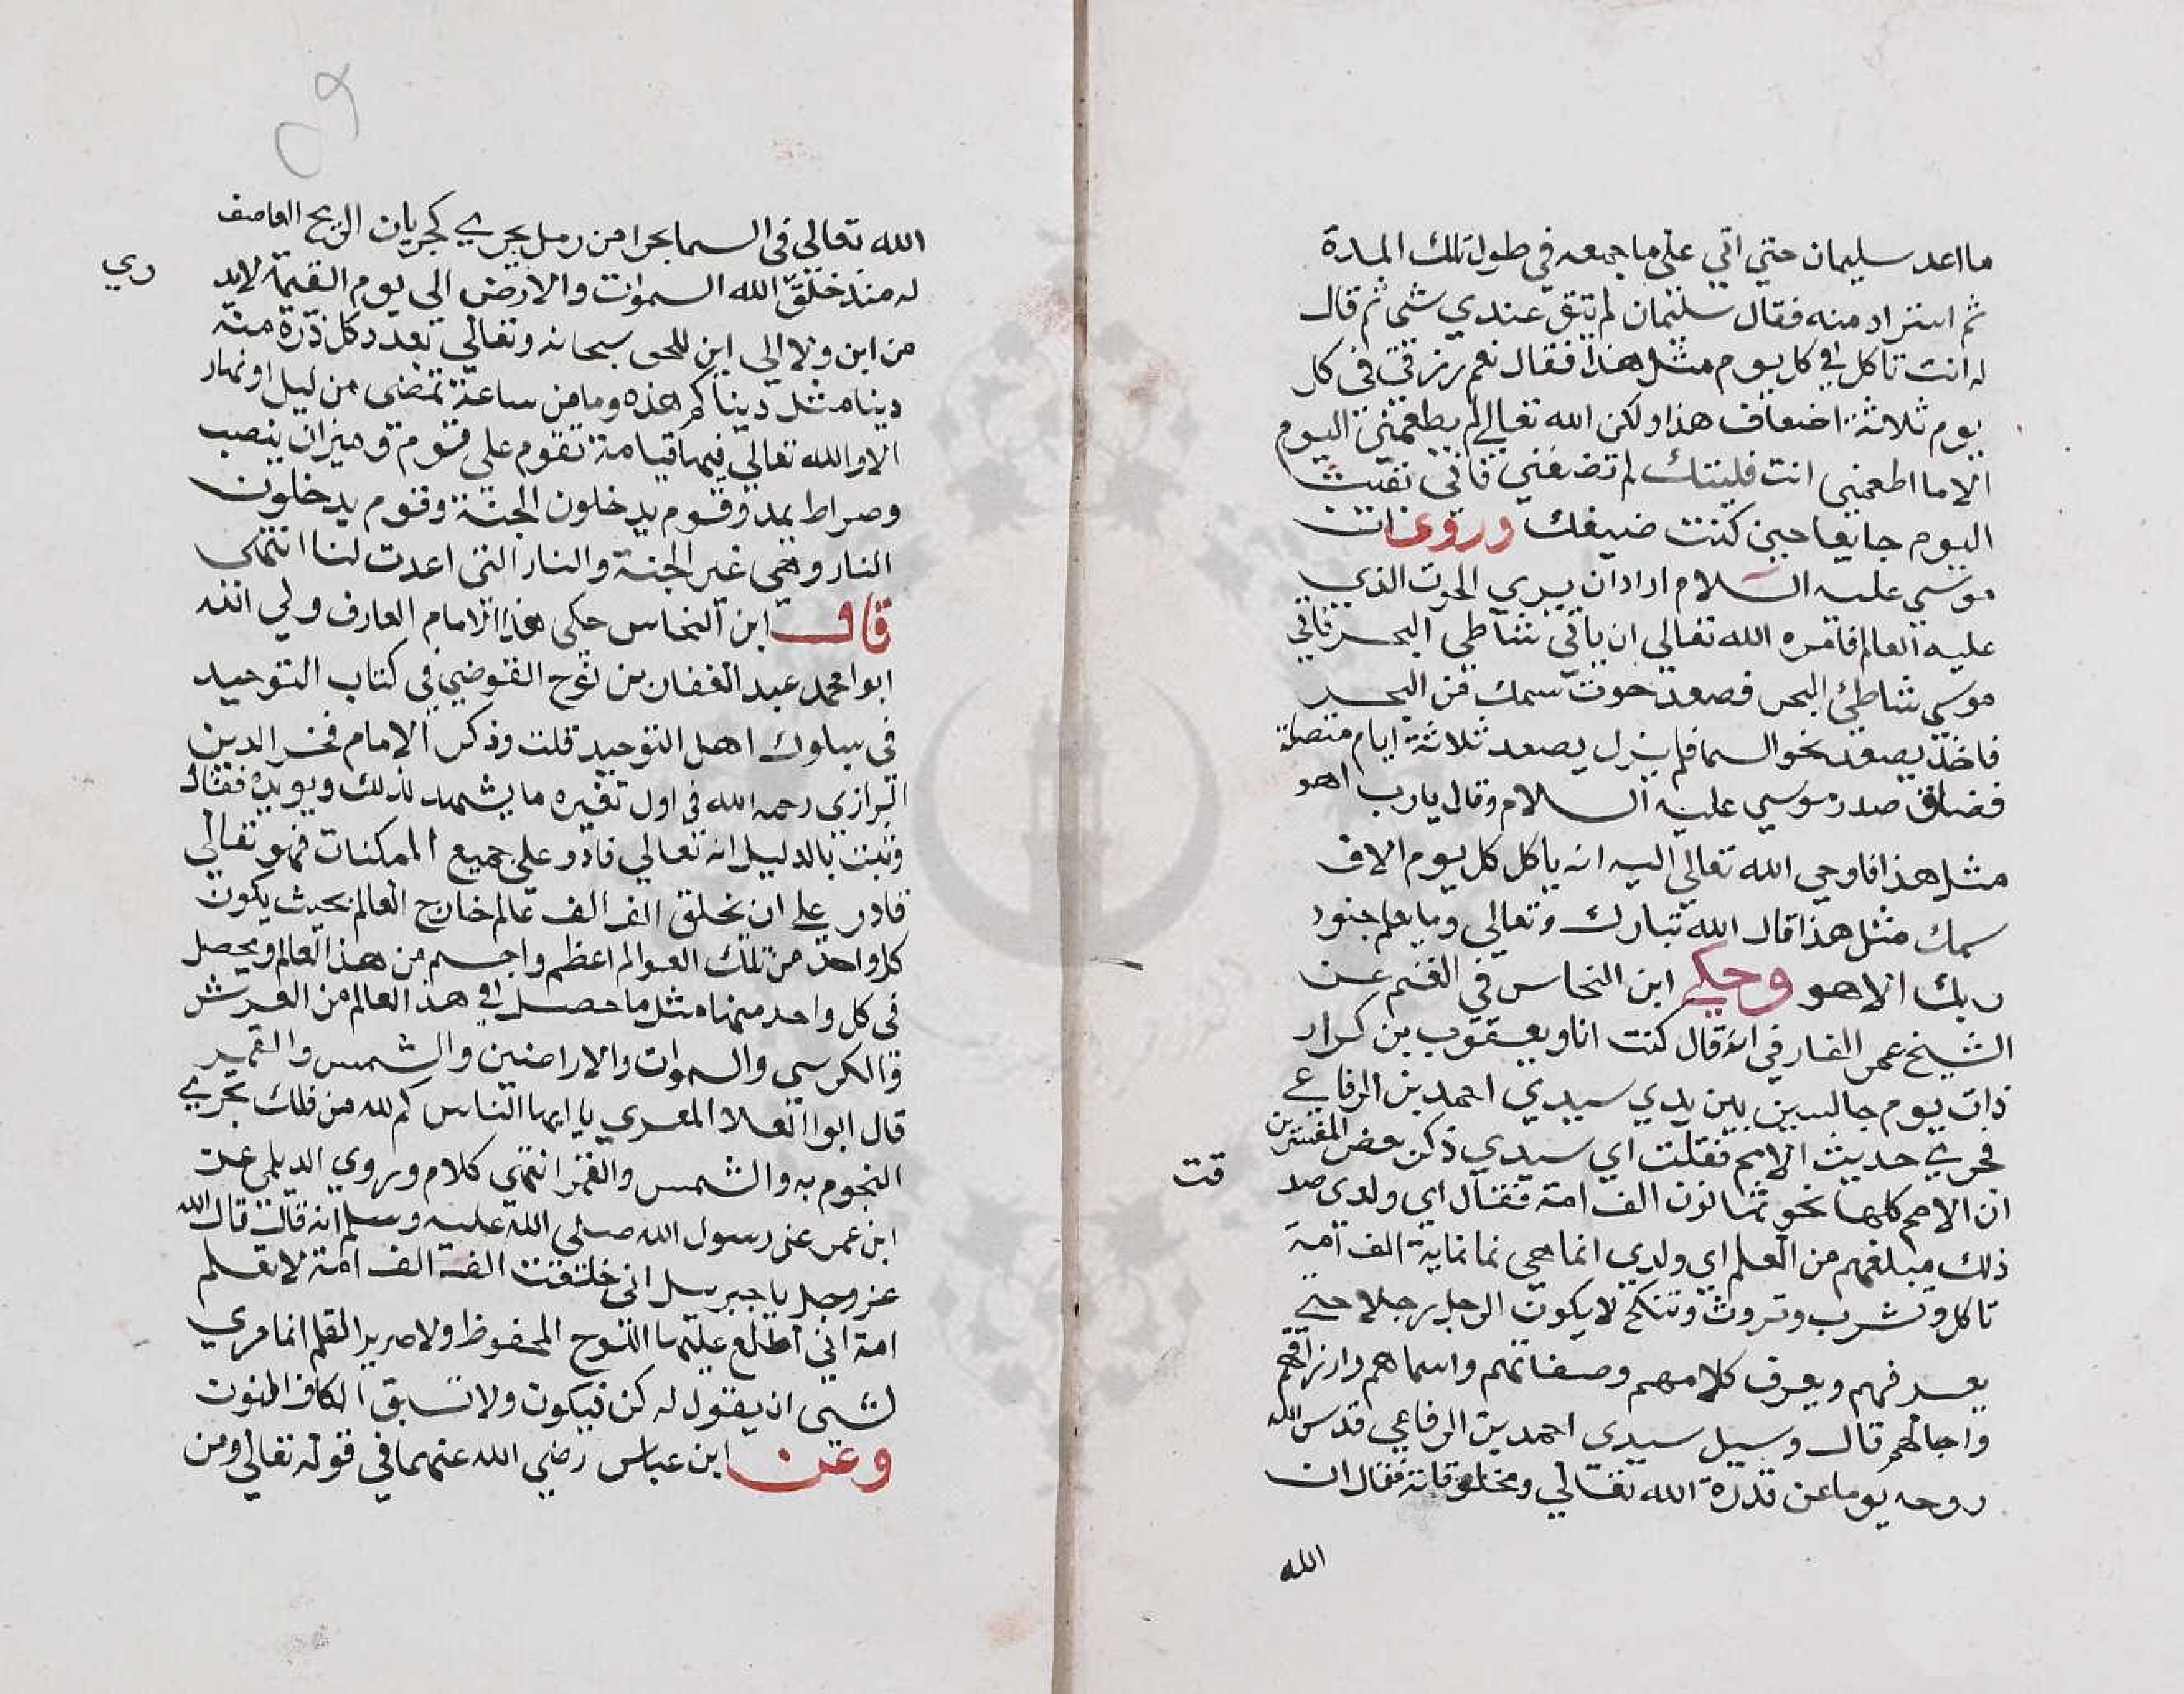 ما اعد سليمان حتي اتي علي ما جمعه في طول تلك المدة
ثم استزاد منه فقال سليمان لم يبق عندي شي ثم قال
له انت تاكل في كل يوم مثل هذا فقال نعم رزقي في كل
يوم ثلاثة اضعاف هذا ولكن الله تعالي لم يطعمني اليوم
الا ما اطعمتني انت فليتك لم تضيفني فاني بقيت
اليوم جايعا حين كنت ضيفك وروي ان
موسي عليه السلام اراد ان يري الحوت الذي
عليه العالم فامره الله تعالي ان ياتي شاطي البحر فاتي
موسي شاطئ البحر فصعد حوت سمك من البحر
فاخذ يصعد نحو السما فلم يزل يصعد ثلاثة ايام متصلة
فضاق صدر موسي عليه السلام وقال يارب اهو
مثل هذا فاوحي الله تعالي اليه انه ياكل كل يوم الاف
سمك مثل هذا قال الله تبارك وتعالي وما يعلم جنود
ربك الا هو وحكي ابن النحاس في الفخم عن
الشيخ عمر الفارقي انه قال كنت انا ويعقوب بن كرار
ذات يوم جالسين بين يدي سيدي احمد بن الرفاعي
فجري حديث الامم فقلت اي سيدي ذكر بعض المفسرين
ان الامم كلها نحو ثمانون الف امة فقال اي ولدي صد
قت
ذلك مبلغهم من العلم اي ولدي انما هي ثمانماية الف امة
تاكل وتشرب وتروث وتنكح لا يكون الرجل رجلا حتي
يعرفهم ويعرف كلامهم وصفاتهم واسماهم وارزاقهم
واجالهم قال وسيل سيدي احمد بن الرفاعي قدس الله
روحه يوما عن قدرة الله تعالي ومخلوقاته فقال ان
الله
٥٩
الله تعالي في السما بحرا من رمل يجري كجريان الريح العاصف
له منذ خلق الله السموات والارض الي يوم القيمة لا يد
ري
من اين ولا الي اين للحق سبحانه وتعالي بعدد كل ذرة منه
دينا مثل ديناكم هذه وما من ساعة تمضي من ليل او نهار
الا ولله تعالي فيها قيامة تقوم علي قوم وميزان ينصب
وصراط يمد وقوم يدخلون الجنة وقوم يدخلون
النار وهي غير الجنة والنار التي اعدت لنا انتهي
قال ابن النحاس حكي هذا الامام العارف ولي الله
ابوا محمد عبد الغفار بن نوح القوصي في كتاب التوحيد
في سلوك اهل التوحيد قلت وذكر الامام فخر الدين
الرازي رحمه الله في اول تفسيره ما يشهد لذلك ويويده فقال
وثبت بالدليل انه تعالي قادر علي جميع الممكنات فهو تعالي
قادر علي ان يخلق الف الف عالم خارج العالم بحيث يكون
كل واحد من تلك العوالم اعظم واجسم من هذا العالم ويحصل
في كل واحد منها مثل ما حصل في هذا العالم من العرش
والكرسي والسموات والاراضين والشمس والقمر
قال ابوا العلا المعري يا ايها الناس كم لله من فلك تجري
النجوم به والشمس والقمر انتهي كلام وروي الديلمي عن
ابن عمر عن رسول الله صلي الله عليه وسلم انه قال قال الله
عز وجل يا جبريل اني خلقت الف الف امة لا تعلم
امة اني اطلع عليها اللوح المحفوظ ولا صرير القلم انما امري
لشي ان يقول له كن فيكون ولا تسبق الكاف النون
وعن ابن عباس رضي الله عنهما في قوله تعالي ومن